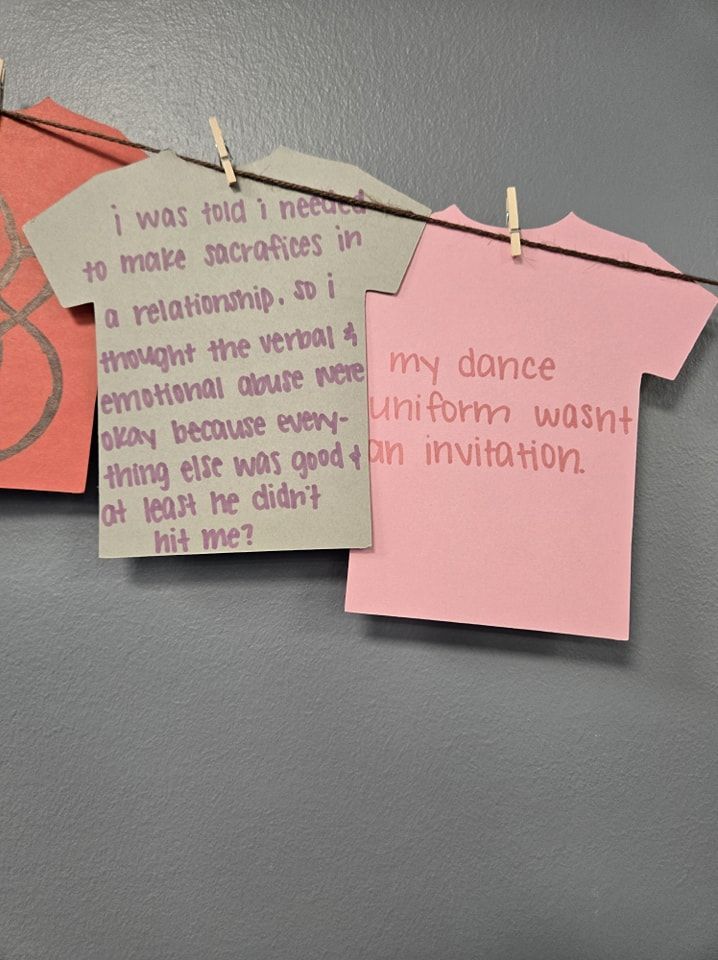 i was told i needed
to make sacrafices in
a relationship. so i
thought the verbal &
emotional abuse were
okay because every-
thing else was good &
at least he didn't
hit me?
my dance
uniform wasnt
an invitation.